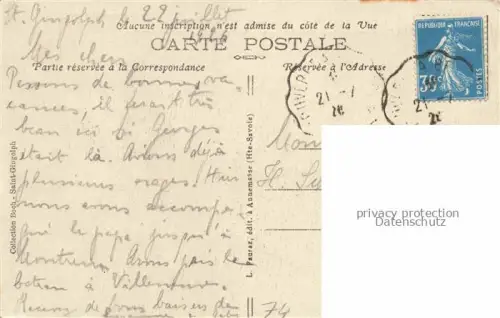 St. Gingolph, le 22 juillet
1926
Aucune inscription n'est admise du côté de la Vue
CARTE POSTALE
Partie réservée à la Correspondance
Réservée à l'Adresse
Mes chers
Passons de bonnes va-
cances, il ferait très
beau ici si Georges
était là. Avons déjà
plusieurs orages. Hier
nous avons accompa-
gné le papa jusqu'à
Montreux. Avons pris le
bateau à Villeneuve.
de bons baisers de
Collection Boch - Saint-Gingolph
L. Fauraz, édit. à Annemasse (Hte-Savoie)
REPUBLIQUE FRANÇAISE
POSTES
21-7
26
21-7
26
privacy protection
Datenschutz
74